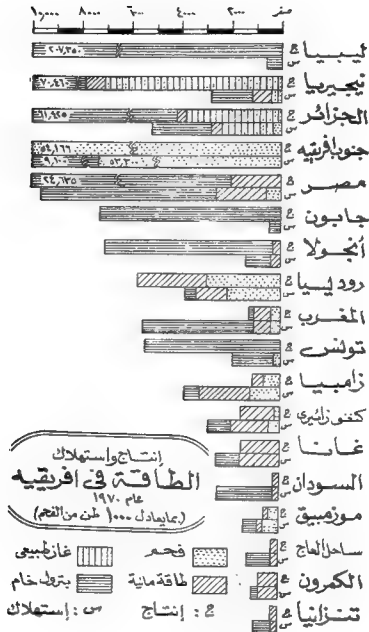 صفر ٢٠٠٠ ٤٠٠٠ ٦٠٠٠ ٨٠٠٠ ١٠٠٠٠
ليبيا ع س ٢٠٧,٣٥٠
نيجيريا ع س ٧٠,٤٦٠
الجزائر ع س ٦١,٩٢٥
جنوب افريقيه ع س ٥٤,١٦٦ ٥٣,٣٠٠ ٩,١٠٠
مصر ع س ٢٤,٦٣٥
جابون ع س
أنجولا ع س
روديسيا ع س
المغرب ع س
تونس ع س
زامبيا ع س
كنغو زائيري ع س
غانا ع س
السودان ع س
موزمبيق ع س
ساحل العاج ع س
الكمرون ع س
تنزانيا ع س
إنتاج واستهلاك
الطاقة في افريقيه
عام ١٩٧٠
(بمايعادل ١٠٠٠ طن من الفحم)
فحم غاز طبيعى
طاقة مائية بترول خام
ع : إنتاج س : إستهلاك